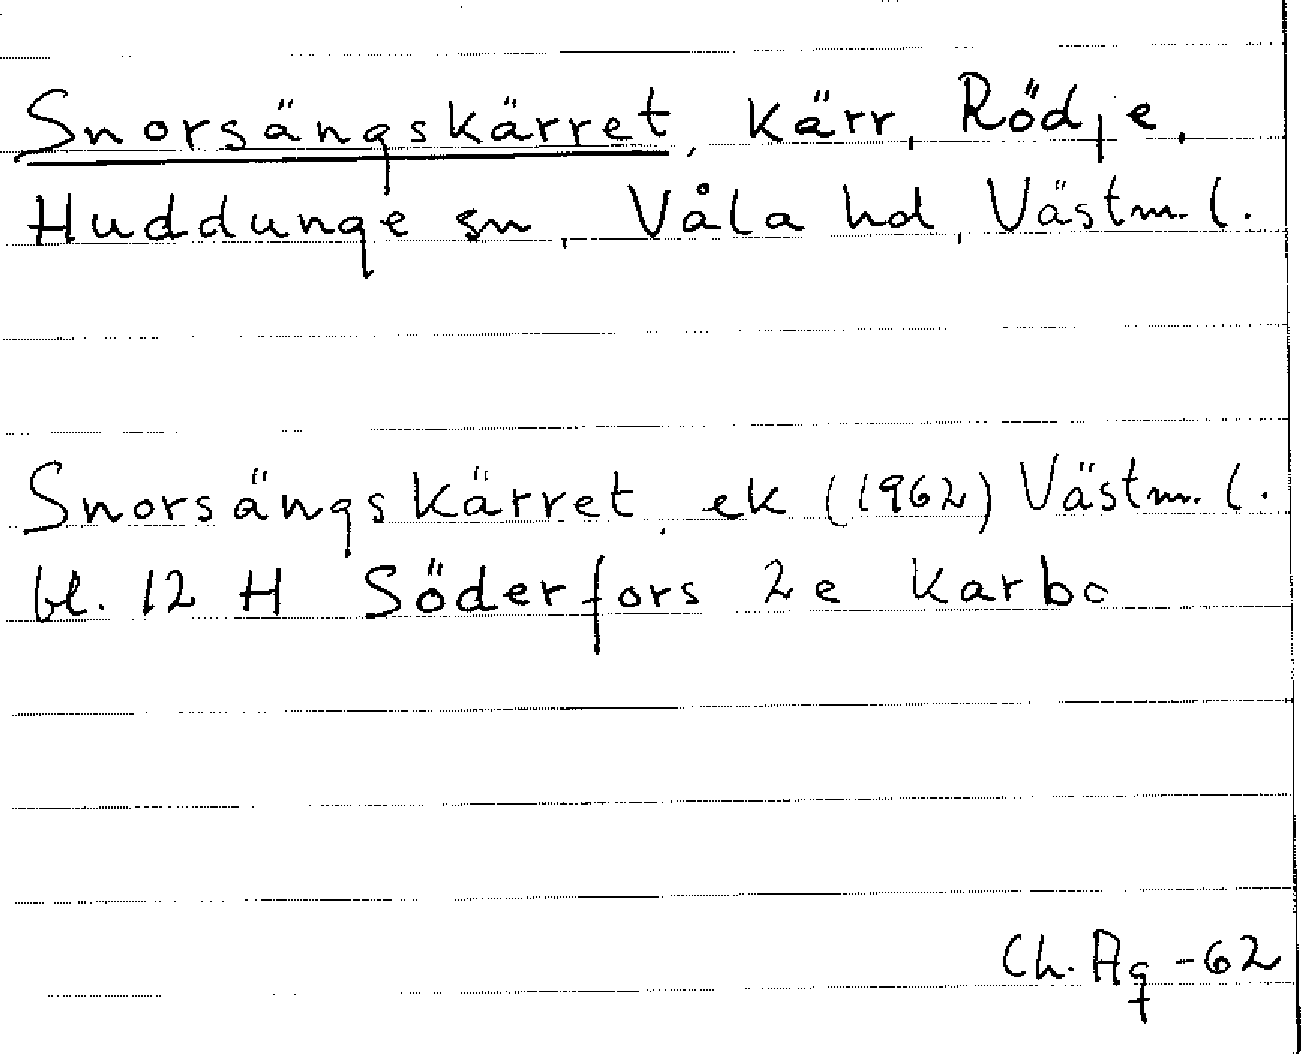 Snorsängskärret, kärr, Rödje,
Huddunge sn, Våla hd, Västm. l.
Snorsängskärret, ek (1962) Västm. l.
bl. 12 H Söderfors 2e Karbo
Ch. Ag -62